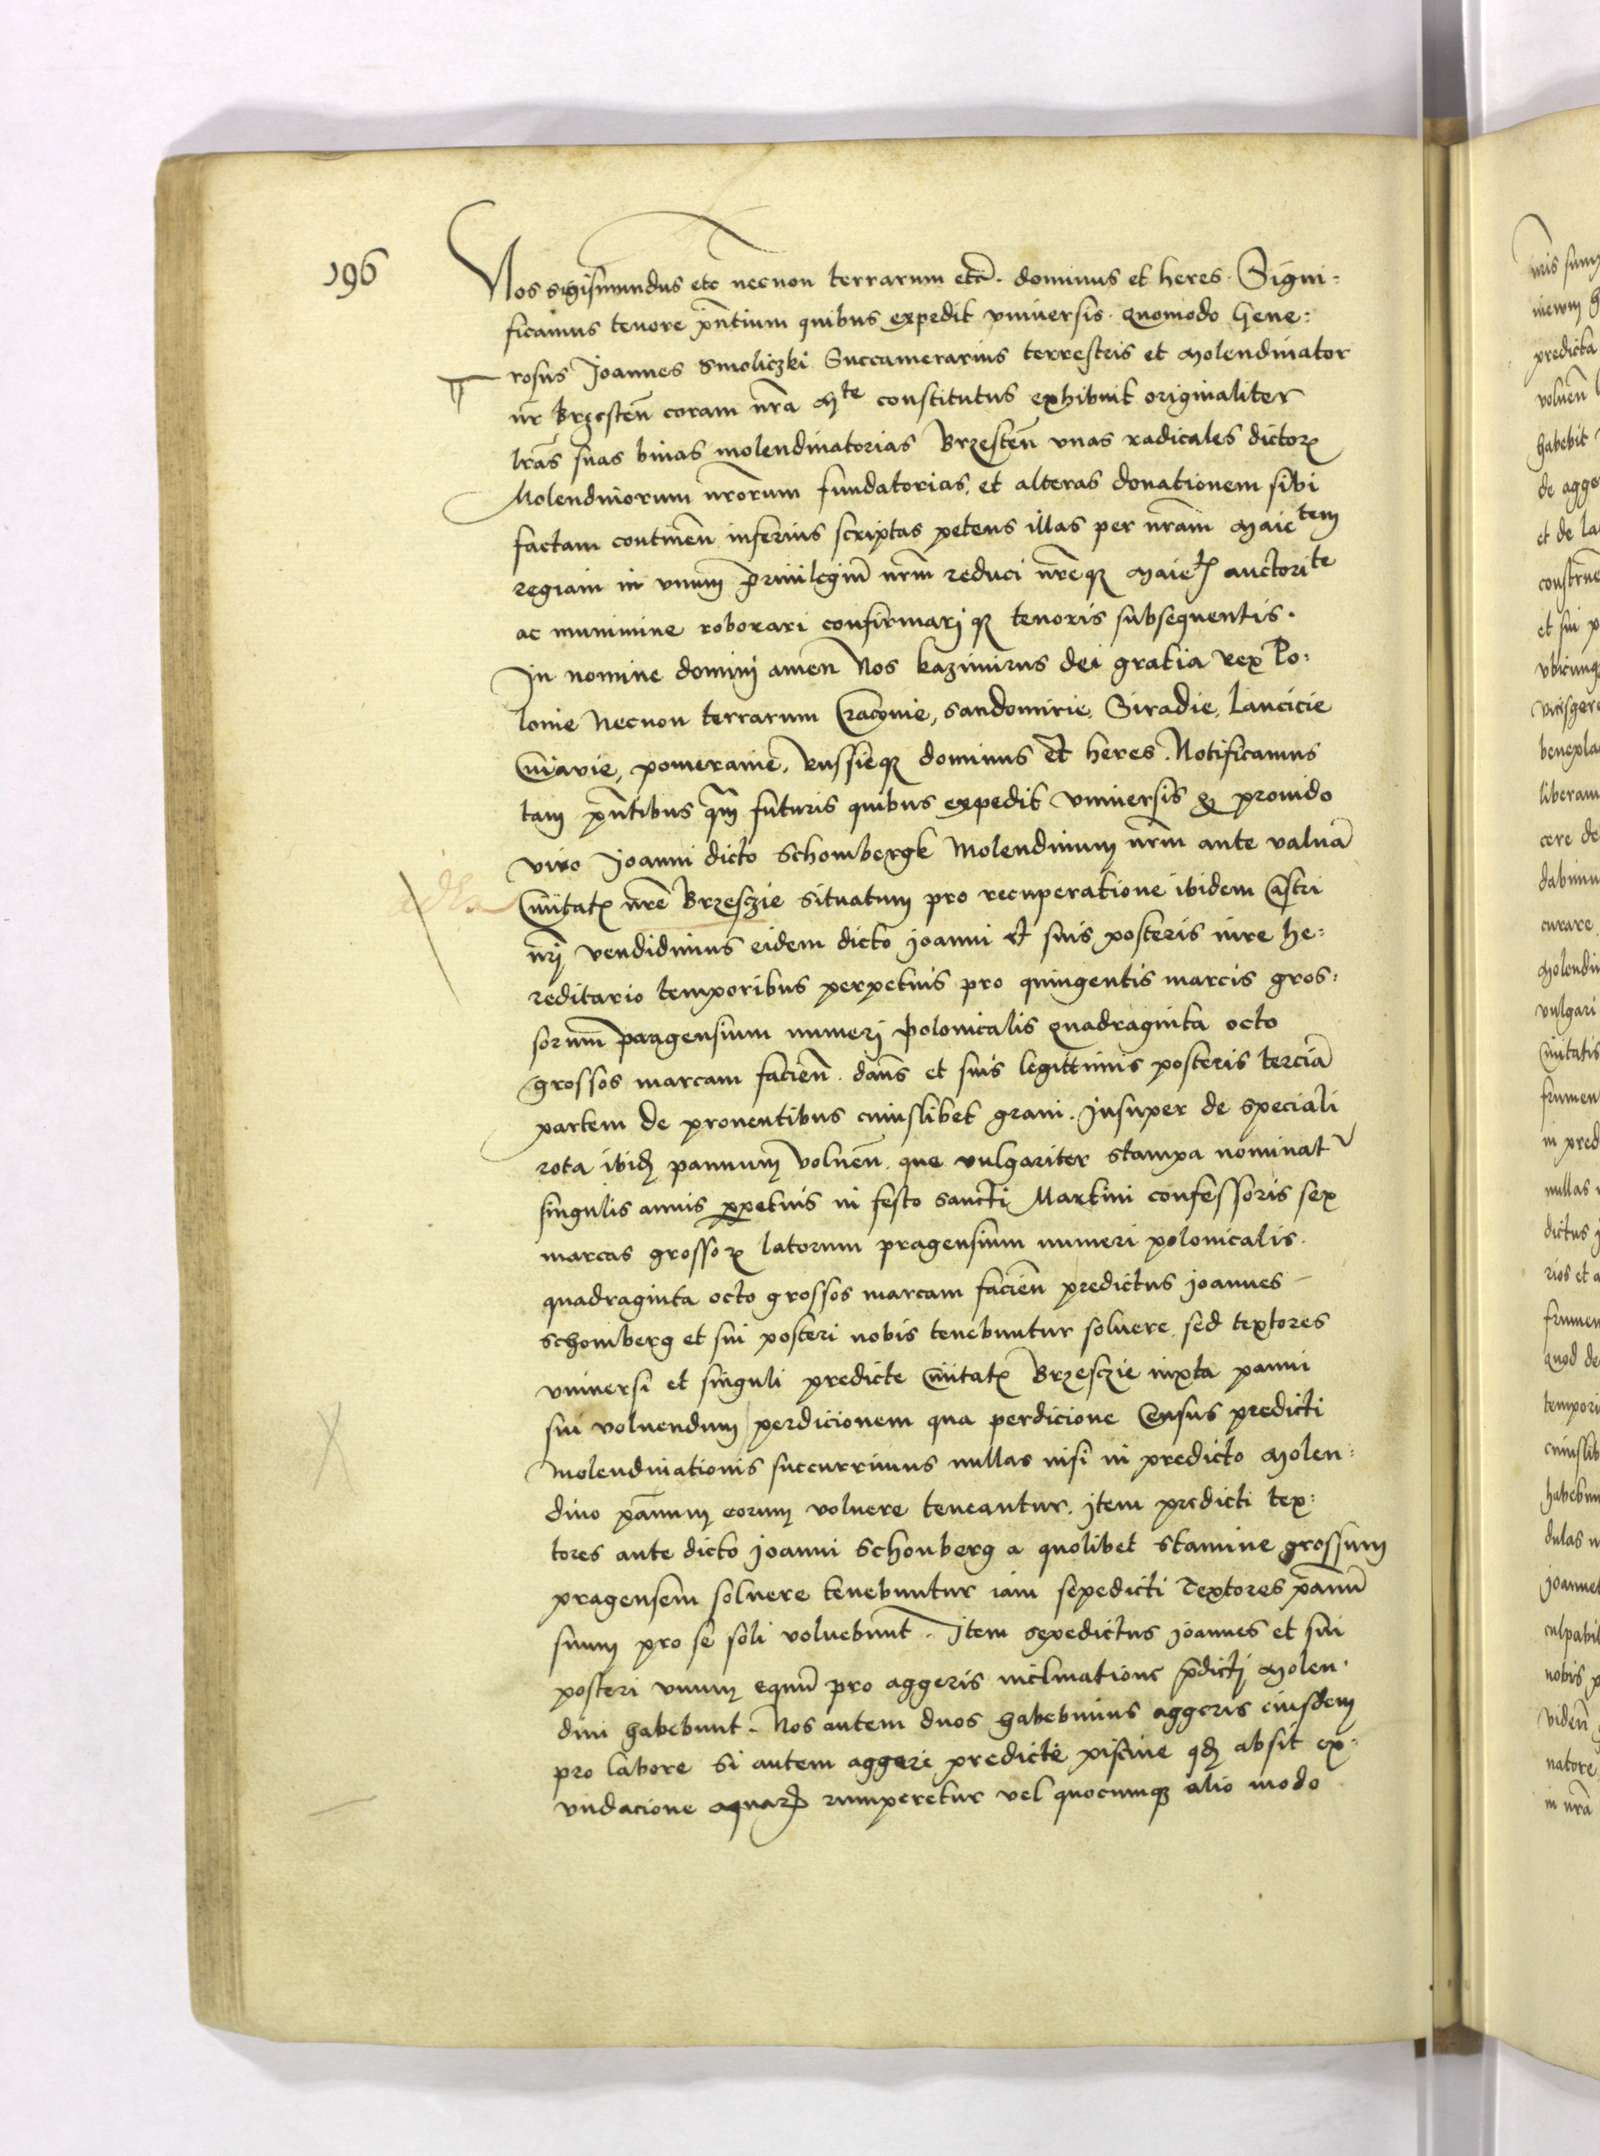 196
Nos Sigismundus etc necnon terrarum etc̄. dominus et heres. Signi:
ficamus tenore pn̄tium quibus expedit vniuersis. quomodo Gene:
rosus Joannes Smoliczki Succamerarius terrestris et Molendinator
nr̄ Brzesten̄ coram nrā Mte constitutus exhibuit originaliter
lrās suas binas molendinatorias Brzesten̄ vnas radicales dictoꝝ
Molendinorum nrōrum fundatorias, et alteras donationem sibi
factam continen̄ inferius scriptas petens illas per nrām Maietem
regiam in vnum priuilegiū nrm̄ reduci nrēqꝫ Maietꝭ auctorite
ac munimine roborari confirmariqꝫ tenoris subsequentis.
In nomine domini amen Nos kazimirus dei gratia rex Po:
lonie Necnon terrarum Cracouie, Sandomirie, Siradie, Lancicie
Cuiavie, pomeranie, Russieqꝫ dominus et heres. Notificamus
tam pn̄tibus qm̄ futuris quibus expedit vniuersis qꝫ prouido
viro Joanni dicto Schombergk Molendinum nrm̄ ante valuā
Ciuitatꝭ nrē Brzesczie situatum pro recuperatione ibidem Castri
nrj̄ vendidimus eidem dicto Joanni et suis posteris iure he:
reditario temporibus perpetuis pro quingentis marcis gros:
sorum pragensium numerj polonicalis quadraginta octo
grossos marcam facien̄. dan̄s et suis legittimis posteris terciā
partem de prouentibus cuiuslibet grani. Insuper de speciali
rota ibidꝫ pannum voluen̄. que vulgariter stampa nominat
singulis annis ꝑpetuis in festo sancti Martini confessoris sex
marcas grossoꝝ latorum pragensium numeri polonicalis.
quadraginta octo grossos marcam facien̄ predictus Joannes
Schomberg et sui posteri nobis tenebuntur soluere. sed textores
vniuersi et singuli predicte Ciuitatꝭ Brzesczie iuxta panni
sui voluendum perdicionem qua perdicione Census predicti
Molendinationis succurrimus nullas nisi in predicto Molen:
dino pannum eorum voluere teneantur. Item predicti tex:
tores ante dicto Joanni Schonberg a quolibet stamine grossum
pragensem soluere tenebuntur iam sepedicti Textores pannū
suum pro se soli voluebunt. Item sepedictus Joannes et sui
posteri vnum equū pro aggeris inclinatione pdictj Molen:
dini habebunt. Nos autem duos habebimus aggeris eiusdem
pro labore Si autem aggere predicte piscine qđ absit ex:
vndacione aquarꝫ rumperetur vel quocumqꝫ alio modo